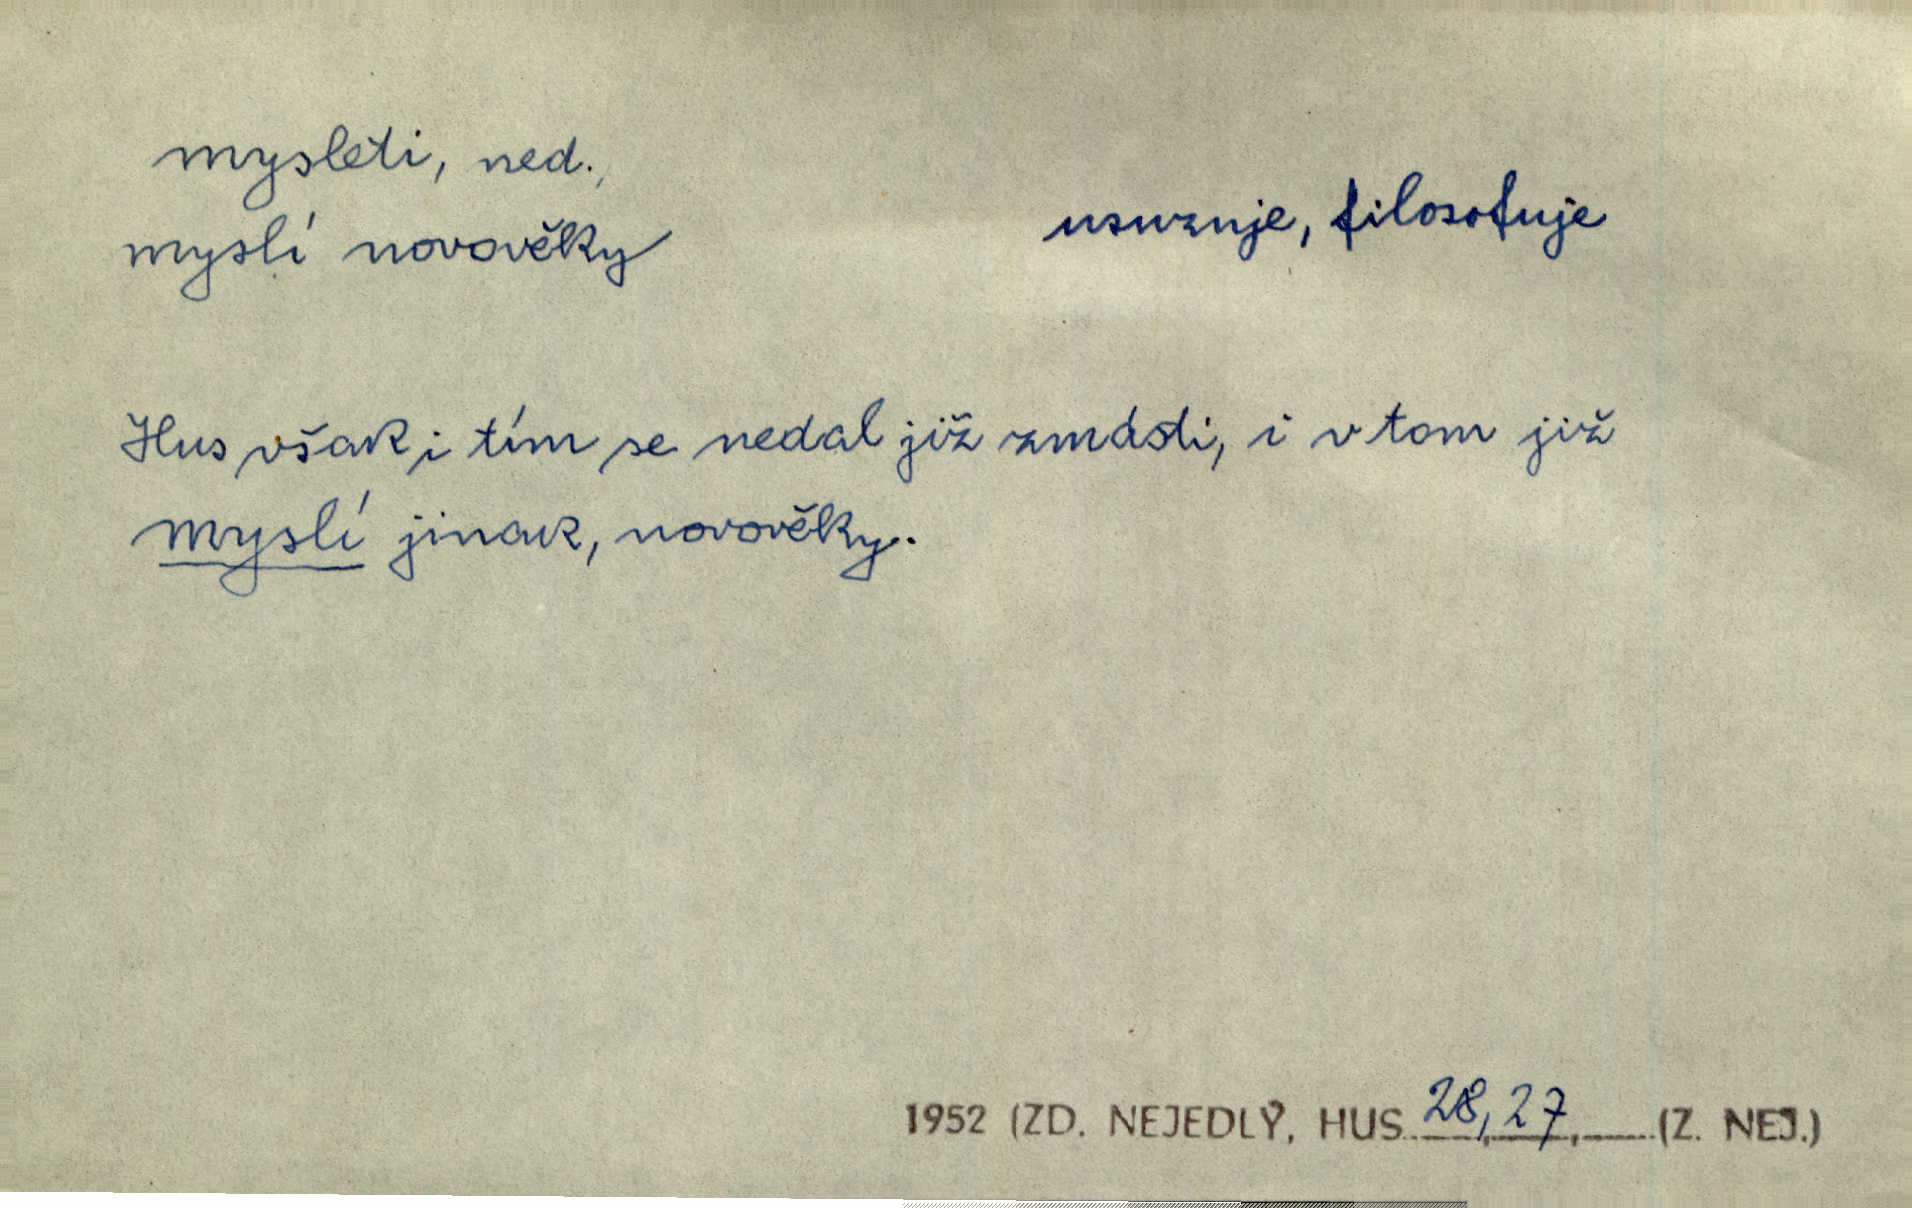 mysleti, ned.,
myslí novověky
usuzuje, filosofuje
Hus však i tím se nedal již zmásti, i v tom již
myslí jinak, novověky.
1952 (ZD. NEJEDLÝ, HUS 28, 27, (Z. NEJ.)